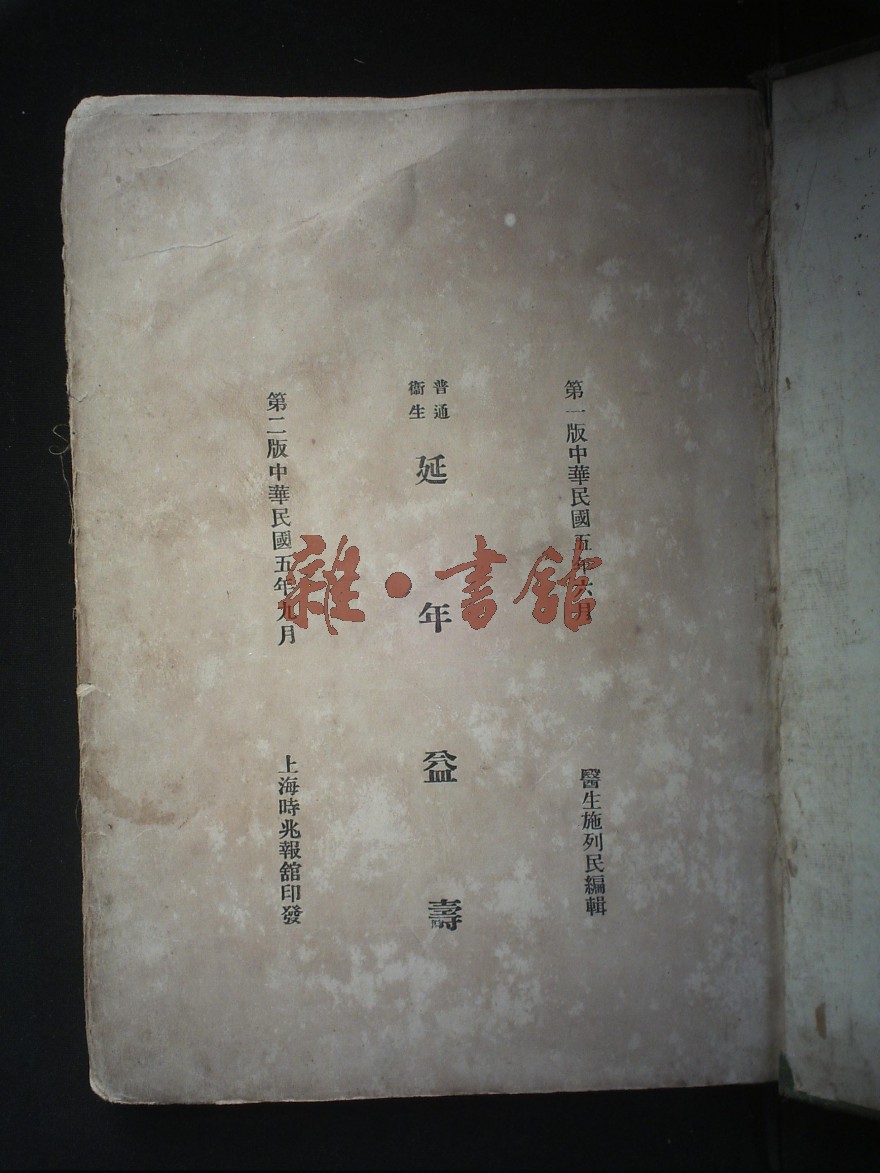 第一版中華民國五年六月
醫生施列民編輯
普通
衞生
延年益壽
第二版中華民國五年九月
上海時兆報館印發
雜·書館